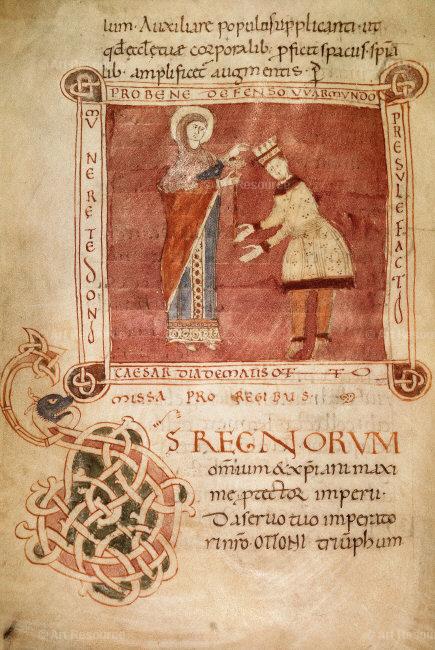 lum. Auxiliare populis supplicanti. ut
qd ecclesiae corporalib; pficit spacus. spia
lib. amplificet augmentis. P
PRO BENE DEFENSO VVARMUNDO
PRESULE FACTO
MUNERE TE DONO
CAESAR DIADEMATIS OTTO
MISSA PRO REGIBUS
DS REGNORUM
omnium & xpiani maxi
me ptector imperii.
Da servo tuo imperato
ri nro OTTONI triuphum
© Art Resource